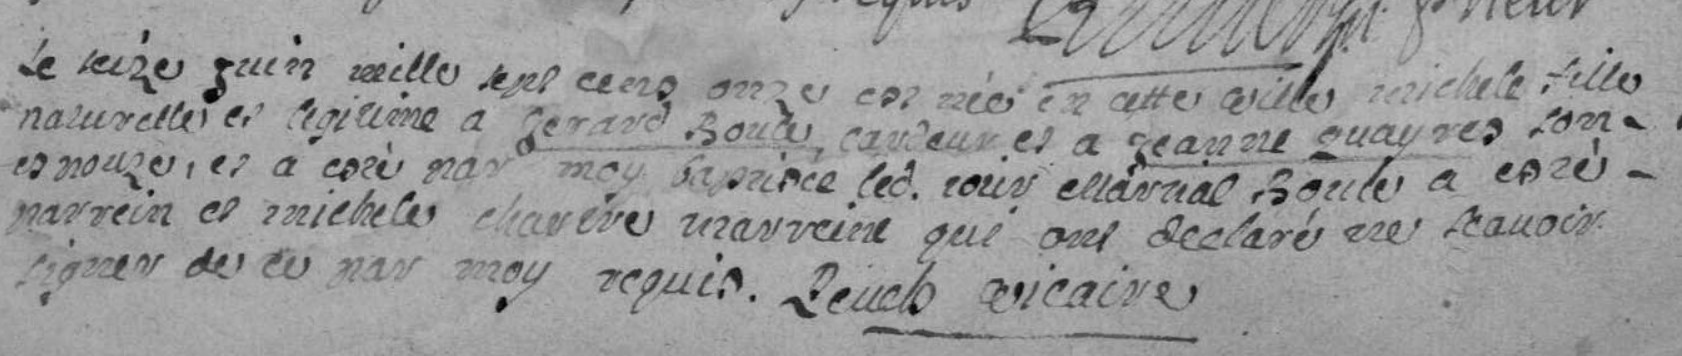 requis prieur
Le seize juin mille sept cens onze est née en cette ville michele fille
naturelle et legitime a Gerard Boule, cardeur et a Jeanne quayres son-
espouze, et a esté par moy baptisée led. jour Martial Boule a esté-
parrein et michele marreine qui ont declaré ne scauoir
signer de ce par moy requis. Peuch vicaire